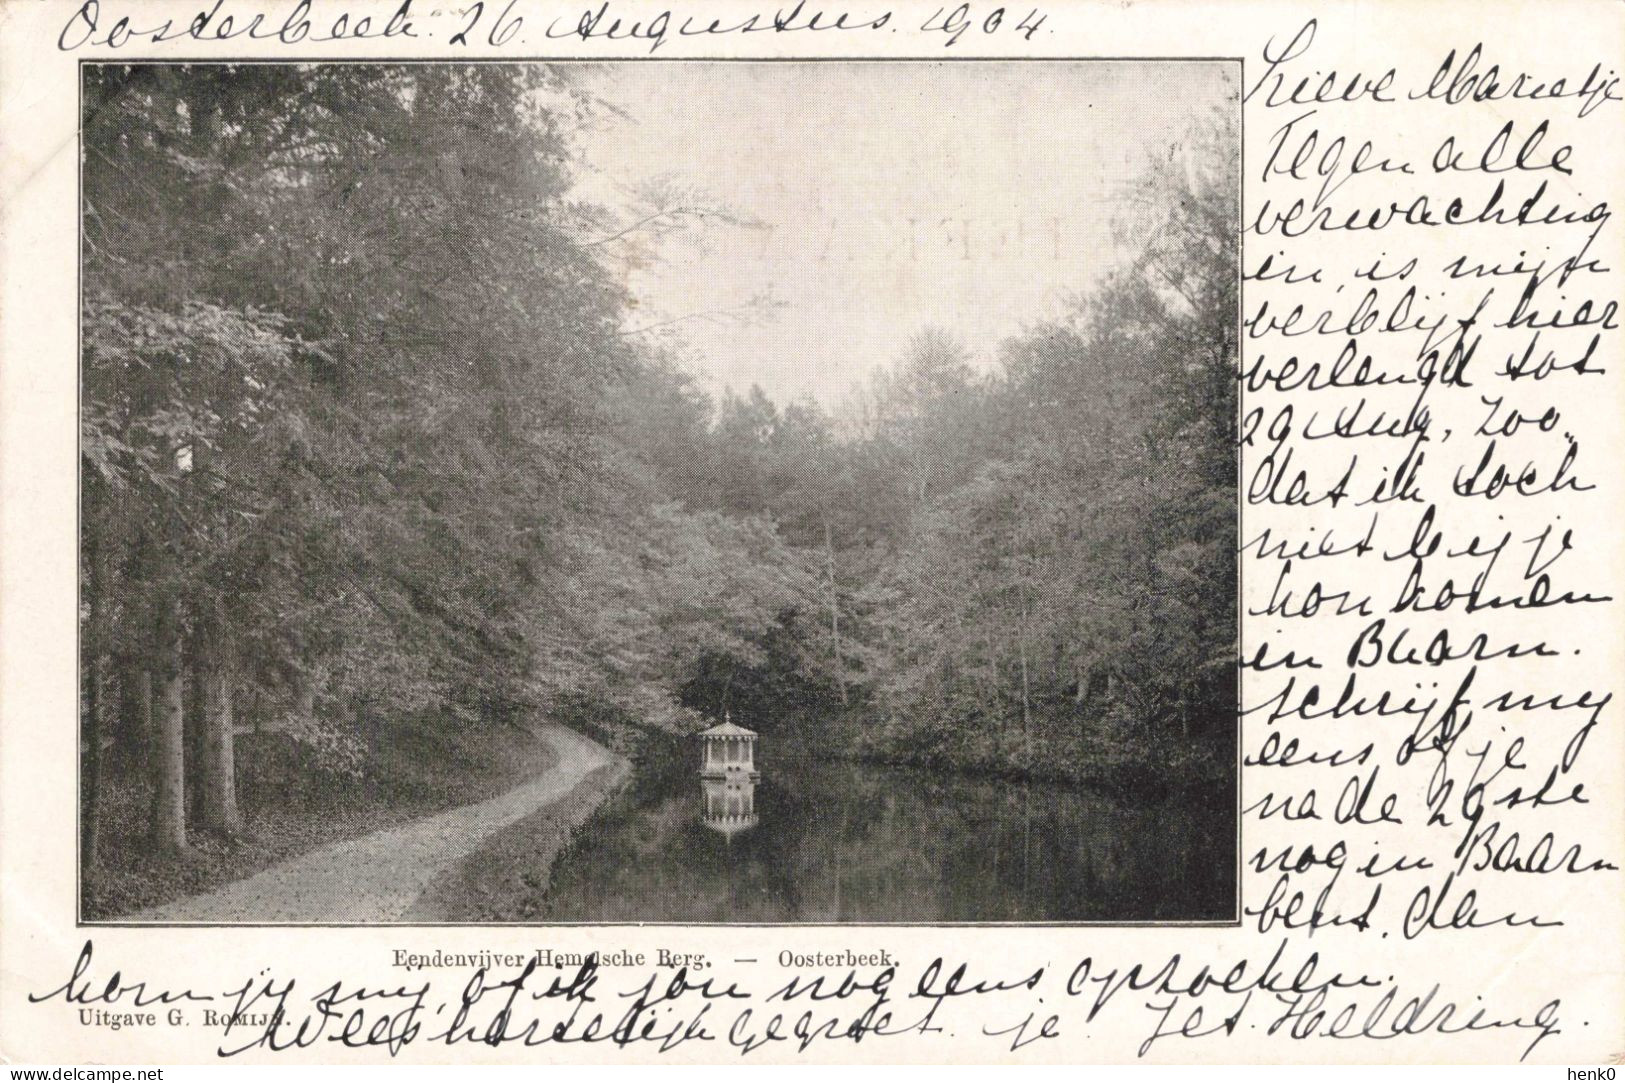 Oosterbeek. 26. Augustus. 1904.
Lieve Marietje
Tegen alle
verwachting
in, is mijn
verblijf hier
verlengd tot
29 Aug, zoo„
dat ik toch
niet bij je
kon komen
in Baarn.
schrijf my
eens of je
na de 29ste
nog in Baarn
bent. dan
kom jy mij, of ik jou nog eens opzoeken.
Wees hartelijk gegroet. je Jet. Heldring.
Eendenvijver Hemelsche Berg. — Oosterbeek.
Uitgave G. Romijn.
henk0
www.delcampe.net